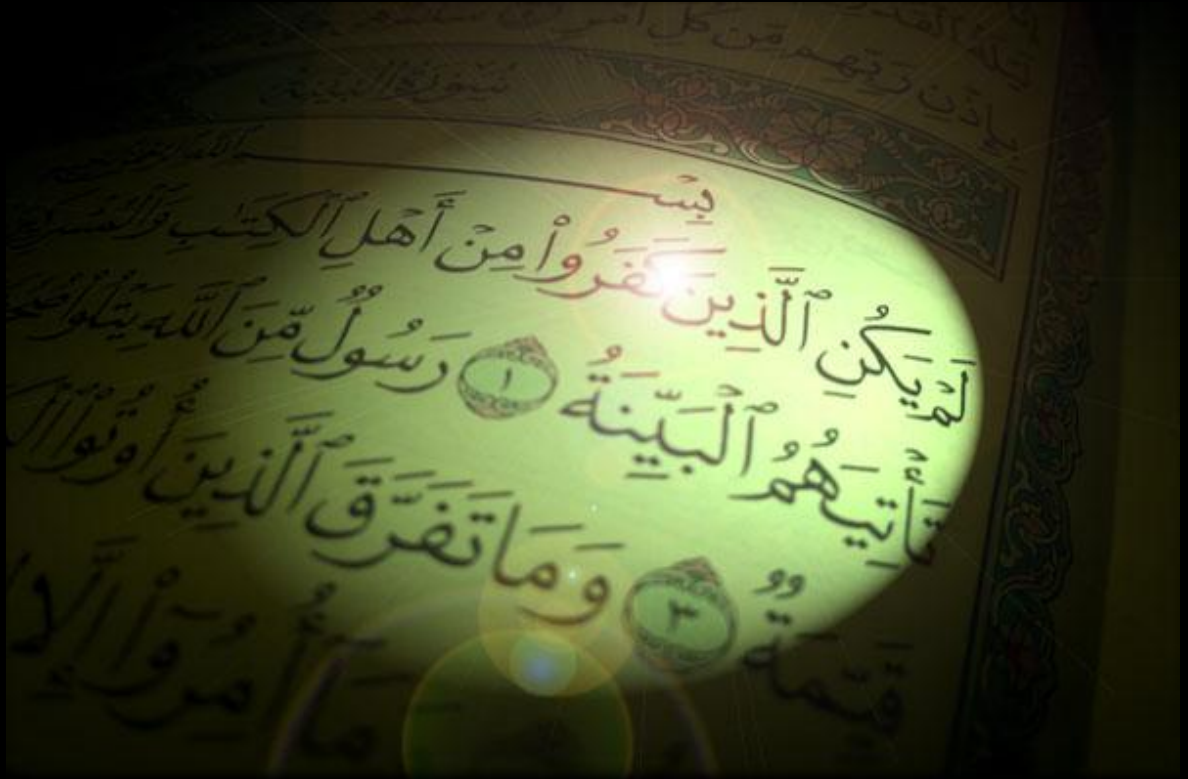 بإذن ربهم من كل أمر
سورة البينة
بِسْ
لَمْ يَكُنِ ٱلَّذِينَ كَفَرُوا۟ مِنْ أَهْلِ ٱلْكِتَـٰبِ
تَأْتِيَهُمُ ٱلْبَيِّنَةُ ١ رَسُولٌ مِّنَ ٱللَّهِ يَتْلُوا۟
قَيِّمَةٌ ٣ وَمَا تَفَرَّقَ ٱلَّذِينَ أُوتُوا۟
مَآ أُمِرُوٓا۟ إِلَّا